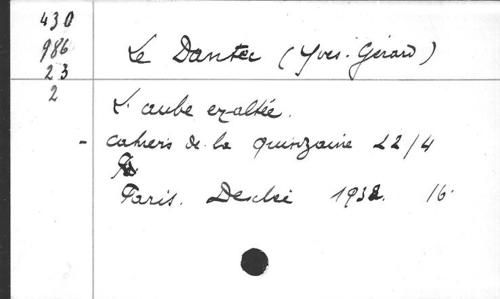 430
986
23
2
Le Dantec (Yves-Gérard)
L'aube exaltée.
- Cahiers de la quinzaine 22/4
Paris. Desclée 1932. 16°